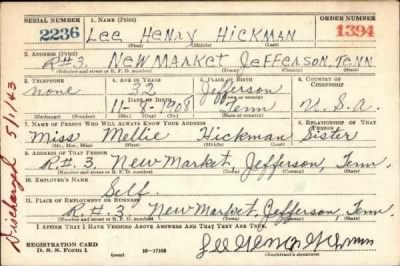 SERIAL NUMBER 1. NAME (Print) ORDER NUMBER
2236 LEE HENRY HICKMAN 1394
(First) (Middle) (Last)
2. ADDRESS (Print)
R#3. NEW MARKET JEFFERSON. TENN.
(Number and street or R. F. D. number) (Town) (County) (State)
3. TELEPHONE 4. AGE IN YEARS 5. PLACE OF BIRTH 6. COUNTRY OF CITIZENSHIP
none 32 Jefferson
DATE OF BIRTH (Town or county)
11-8-1908 Tenn U.S.A.
(Exchange) (Number) (Mo.) (Day) (Yr.) (State or country)
7. NAME OF PERSON WHO WILL ALWAYS KNOW YOUR ADDRESS 8. RELATIONSHIP OF THAT PERSON
Miss Mellie Hickman Sister
(Mr., Mrs., Miss) (First) (Middle) (Last)
9. ADDRESS OF THAT PERSON
R.#3, New Market, Jefferson, Tenn.
(Number and street or R. F. D. number) (Town) (County) (State)
10. EMPLOYER'S NAME
Self.
11. PLACE OF EMPLOYMENT OR BUSINESS
R.#3 New Market, Jefferson, Tenn.
(Number and street or R. F. D. number) (Town) (County) (State)
I AFFIRM THAT I HAVE VERIFIED ABOVE ANSWERS AND THAT THEY ARE TRUE.
REGISTRATION CARD
D. S. S. Form 1 (over)
(Registrant's signature)
Discharged 5/1/43